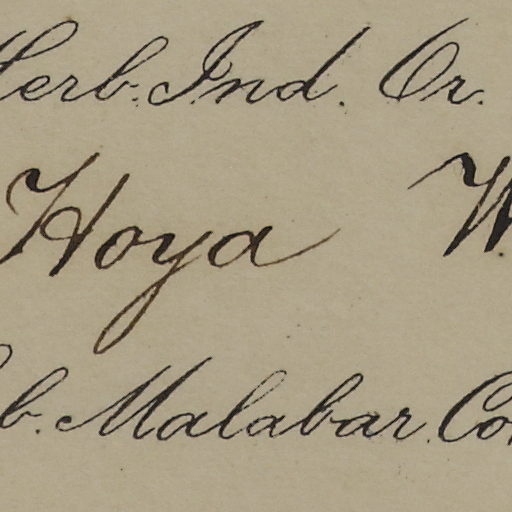 Herb. Ind. Or.
Hoya W
b. Malabar. Co